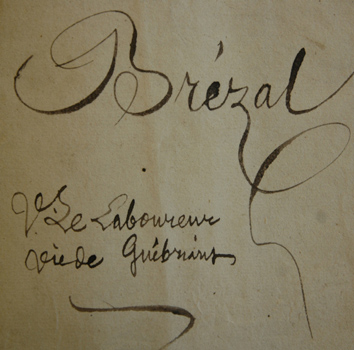 Brézal
V. Le Laboureur
vie de Guébriant